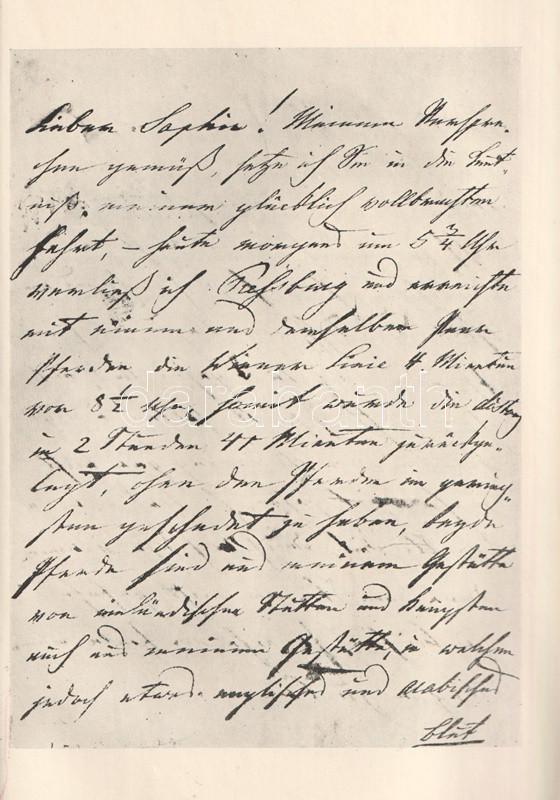 Lieben Sophie! Meinem Verspre-
chen gemäß, setze ich Sie in die Kent-
niß, meiner glücklich vollbrachten
Fahrt, – heute morgens um 5 3/4 Uhr
verließ ich Preßburg und erreichte
mit einem und demselben Paar
Pferden die Wiener Linie 4 Minuten
vor 8 1/2 Uhr, somit wurde die distanz
in 2 Stunden 41 Minuten zurückge-
legt, ohne den Pferden im gering-
sten geschadet zu haben, beyde
Pferde sind aus meinem Gestütte
von inländischen Stutten und Hengsten
auch aus meinem Gestütte, in welchen
jedoch etwas englisches und arabisches
blut
darabanth